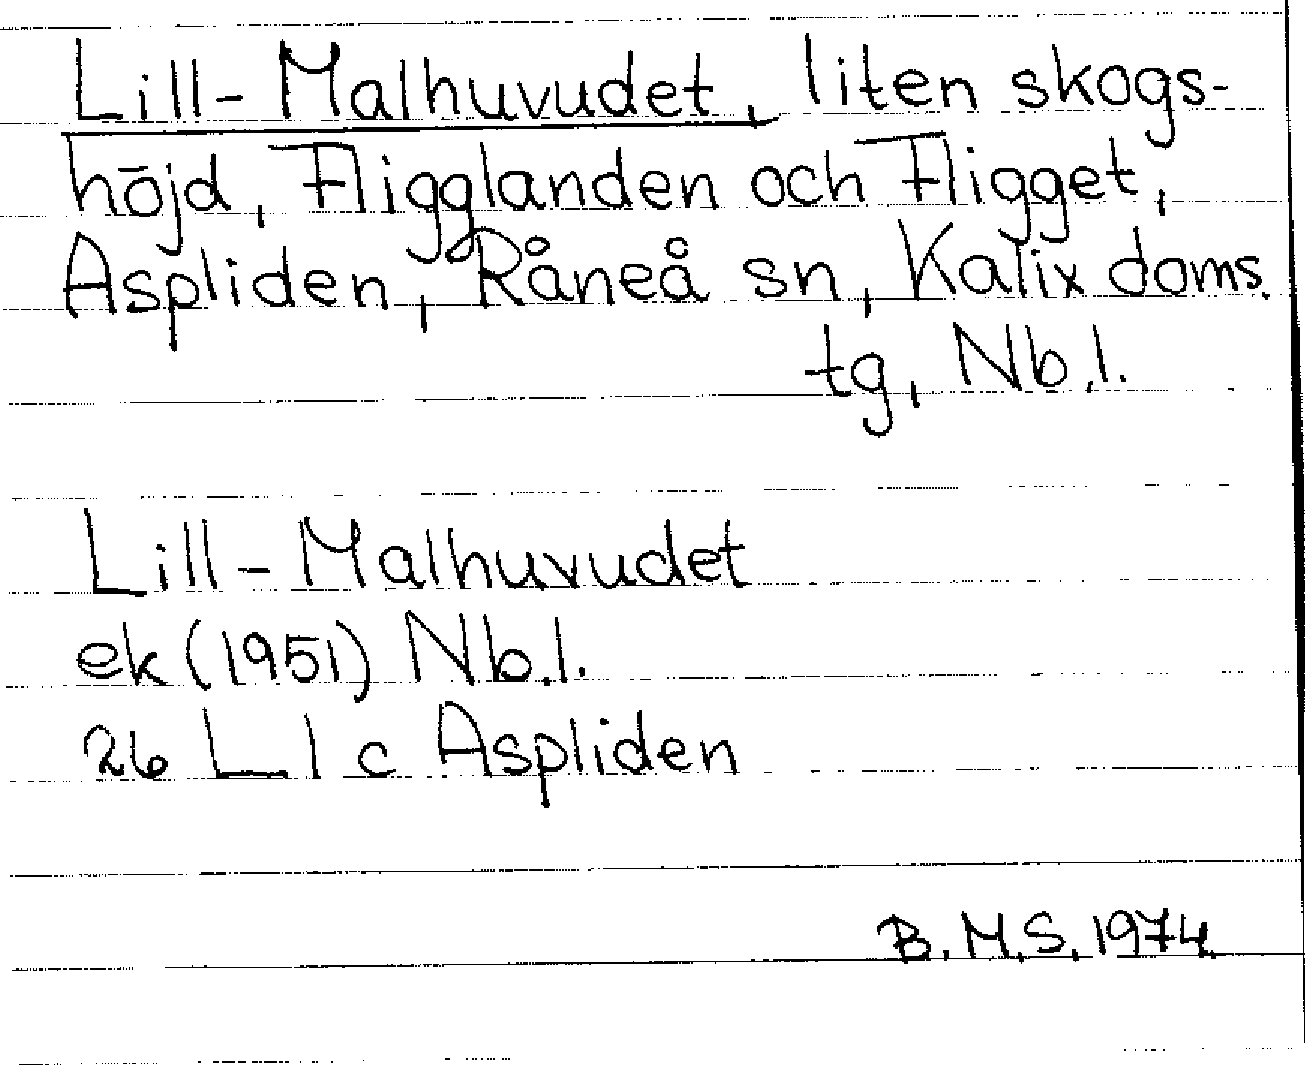 Lill-Malhuvudet, liten skogs-
höjd, Fligglanden och Fligget,
Aspliden, Råneå sn, Kalix doms.
tg, Nb.l.
Lill-Malhuvudet
ek (1951) Nb.l.
26 L 1 c Aspliden
B.M.S. 1974